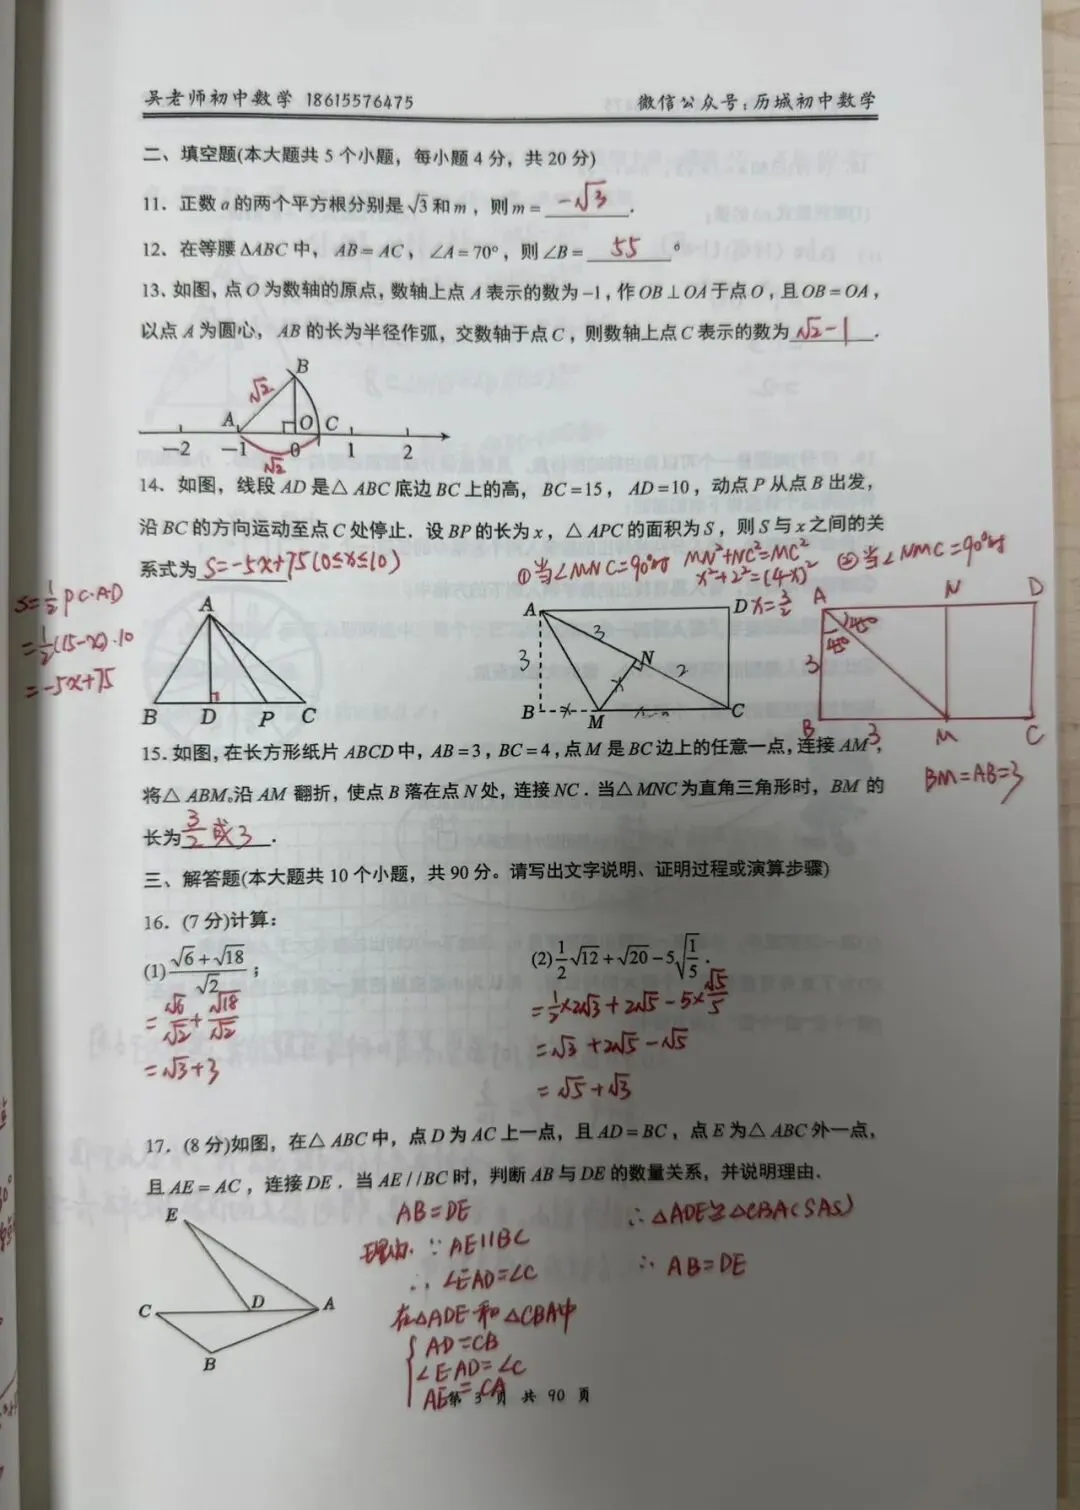 吴老师初中数学 18615576475 微信公众号：历城初中数学
二、填空题(本大题共5个小题，每小题4分，共20分)
11．正数a的两个平方根分别是√3和m，则m= -√3 ．
12．在等腰△ABC中，AB=AC，∠A=70°，则∠B= 55 °
13．如图，点O为数轴的原点，数轴上点A表示的数为-1，作OB⊥OA于点O，且OB=OA，
以点A为圆心，AB的长为半径作弧，交数轴于点C，则数轴上点C表示的数为 √2-1 ．
B
√2
A O C
-2 -1 0 1 2
√2
14．如图，线段AD是△ABC底边BC上的高，BC=15，AD=10，动点P从点B出发，
沿BC的方向运动至点C处停止．设BP的长为x，△APC的面积为S，则S与x之间的关
系式为 S=-5x+75(0≤x≤10)
S=½PC·AD
=½(15-x)·10
=-5x+75
A
B D P C
①当∠MNC=90°时 MN²+NC²=MC²
x²+2²=(4-x)²
x=3/2
A D
3 3 N 2
x
B x M C
②当∠NMC=90°时
A N D
45°
45°
3
B M C
3
BM=AB=3
15．如图，在长方形纸片ABCD中，AB=3，BC=4，点M是BC边上的任意一点，连接AM，
将△ABM沿AM翻折，使点B落在点N处，连接NC．当△MNC为直角三角形时，BM的
长为 3/2或3 ．
三、解答题(本大题共10个小题，共90分。请写出文字说明、证明过程或演算步骤)
16．(7分)计算：
(1)(√6+√18)/√2；
=√6/√2+√18/√2
=√3+3
(2)½√12+√20-5√(1/5)．
=½×2√3+2√5-5×√5/5
=√3+2√5-√5
=√5+√3
17．(8分)如图，在△ABC中，点D为AC上一点，且AD=BC，点E为△ABC外一点，
且AE=AC，连接DE．当AE//BC时，判断AB与DE的数量关系，并说明理由．
E
C D A
B
AB=DE
理由：∵AE∥BC
∴∠EAD=∠C
在△ADE和△CBA中
{AD=CB
∠EAD=∠C
AE=CA
∴△ADE≌△CBA(SAS)
∴AB=DE
第 3 页 共 90 页